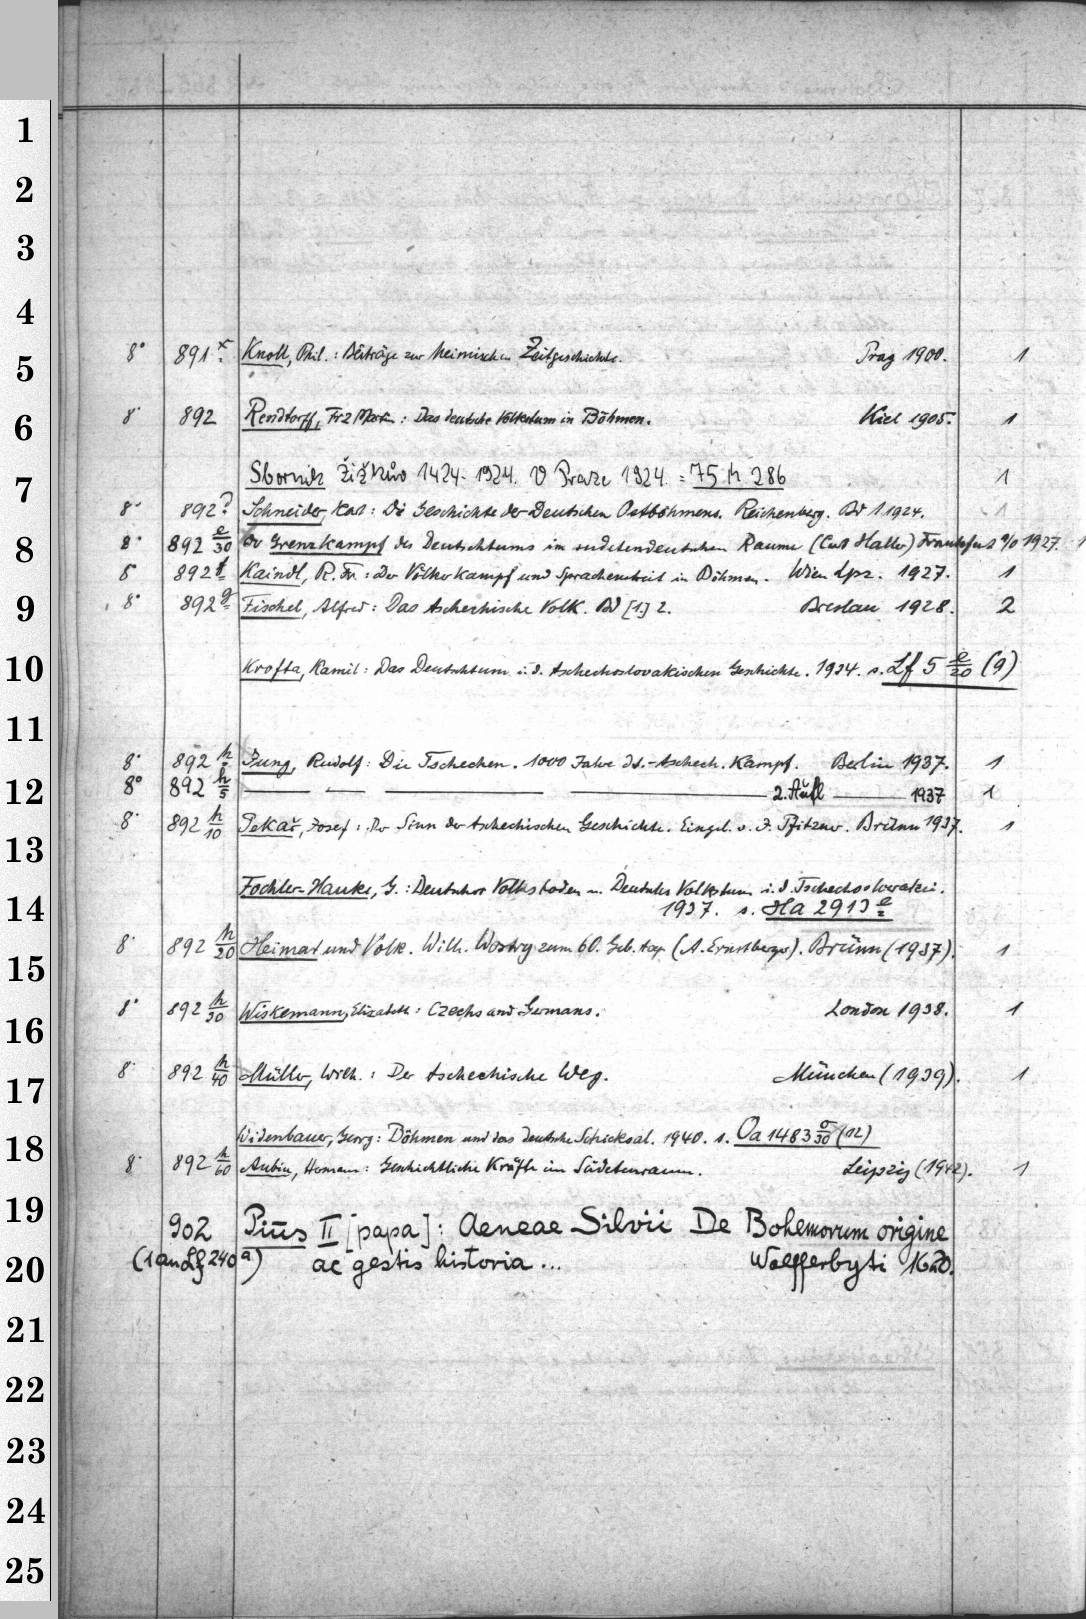 1
2
3
4
8° 891 x Knoll, Phil.: Beiträge zur heimischen Zeitgeschichte. Prag 1900. 1
5
8° 892 Rendtorff, Frz Martin: Das deutsche Volkstum in Böhmen. Kiel 1905. 1
6
Sborník Žižkův 1424-1924. V Praze 1924. = 75 H 286 1
7
8° 892 Schneider, Karl: Die Geschichte der Deutschen Ostböhmens. Reichenberg. Bd 1. 1924. 1
8° 892 e/30 Der Grenzkampf des Deutschtums im sudetendeutschen Raume (Curt Haller) Frankfurt a/O 1927. 1
8
8° 892 f Kaindl, R. Fr.: Der Völkerkampf und Sprachenstreit in Böhmen. Wien Lpz. 1927. 1
8° 892 g Fischel, Alfred: Das tschechische Volk. Bd [1.] 2. Breslau 1928. 2
9
10 Krofta, Kamil: Das Deutschtum i. d. tschechoslovakischen Geschichte. 1934. s. Lf 5 e/20 (9)
11
8° 892 h Jung, Rudolf: Die Tschechen. 1000 Jahre dt.-tschech. Kampf. Berlin 1937. 1
12 8° 892 h/5 2. Aufl 1937 1
8° 892 h/10 Pekař, Josef: Der Sinn der tschechischen Geschichte. Eingel. v. J. Pfitzner. Brünn 1937. 1
13
Fochler-Hauke, G.: Deutscher Volksboden u. Deutsches Volkstum i. d. Tschechoslowakei.
14 1937. s. Ha 2913 e
8° 892 h/20 Heimat und Volk. Wilh. Wostry zum 60. Geb. tag (A. Ernstberger). Brünn (1937). 1
15
8° 892 h/30 Wiskemann, Elizabeth: Czechs and Germans. London 1938. 1
16
8° 892 h/40 Müller, Wilh.: Der tschechische Weg. München (1939). 1
17
Widenbauer, Georg: Böhmen und das deutsche Schicksal. 1940. s. Oa 1483 σ/30 (12)
18
8° 892 h/60 Aubin, Hermann: Geschichtliche Kräfte im Sudetenraum. Leipzig (1942). 1
19
902 Pius II [papa]: Aeneae Silvii De Bohemorum origine
20 (1 an Lf 240 a) ac gestis historia ... Wolfferbyti 1620.
21
22
23
24
25